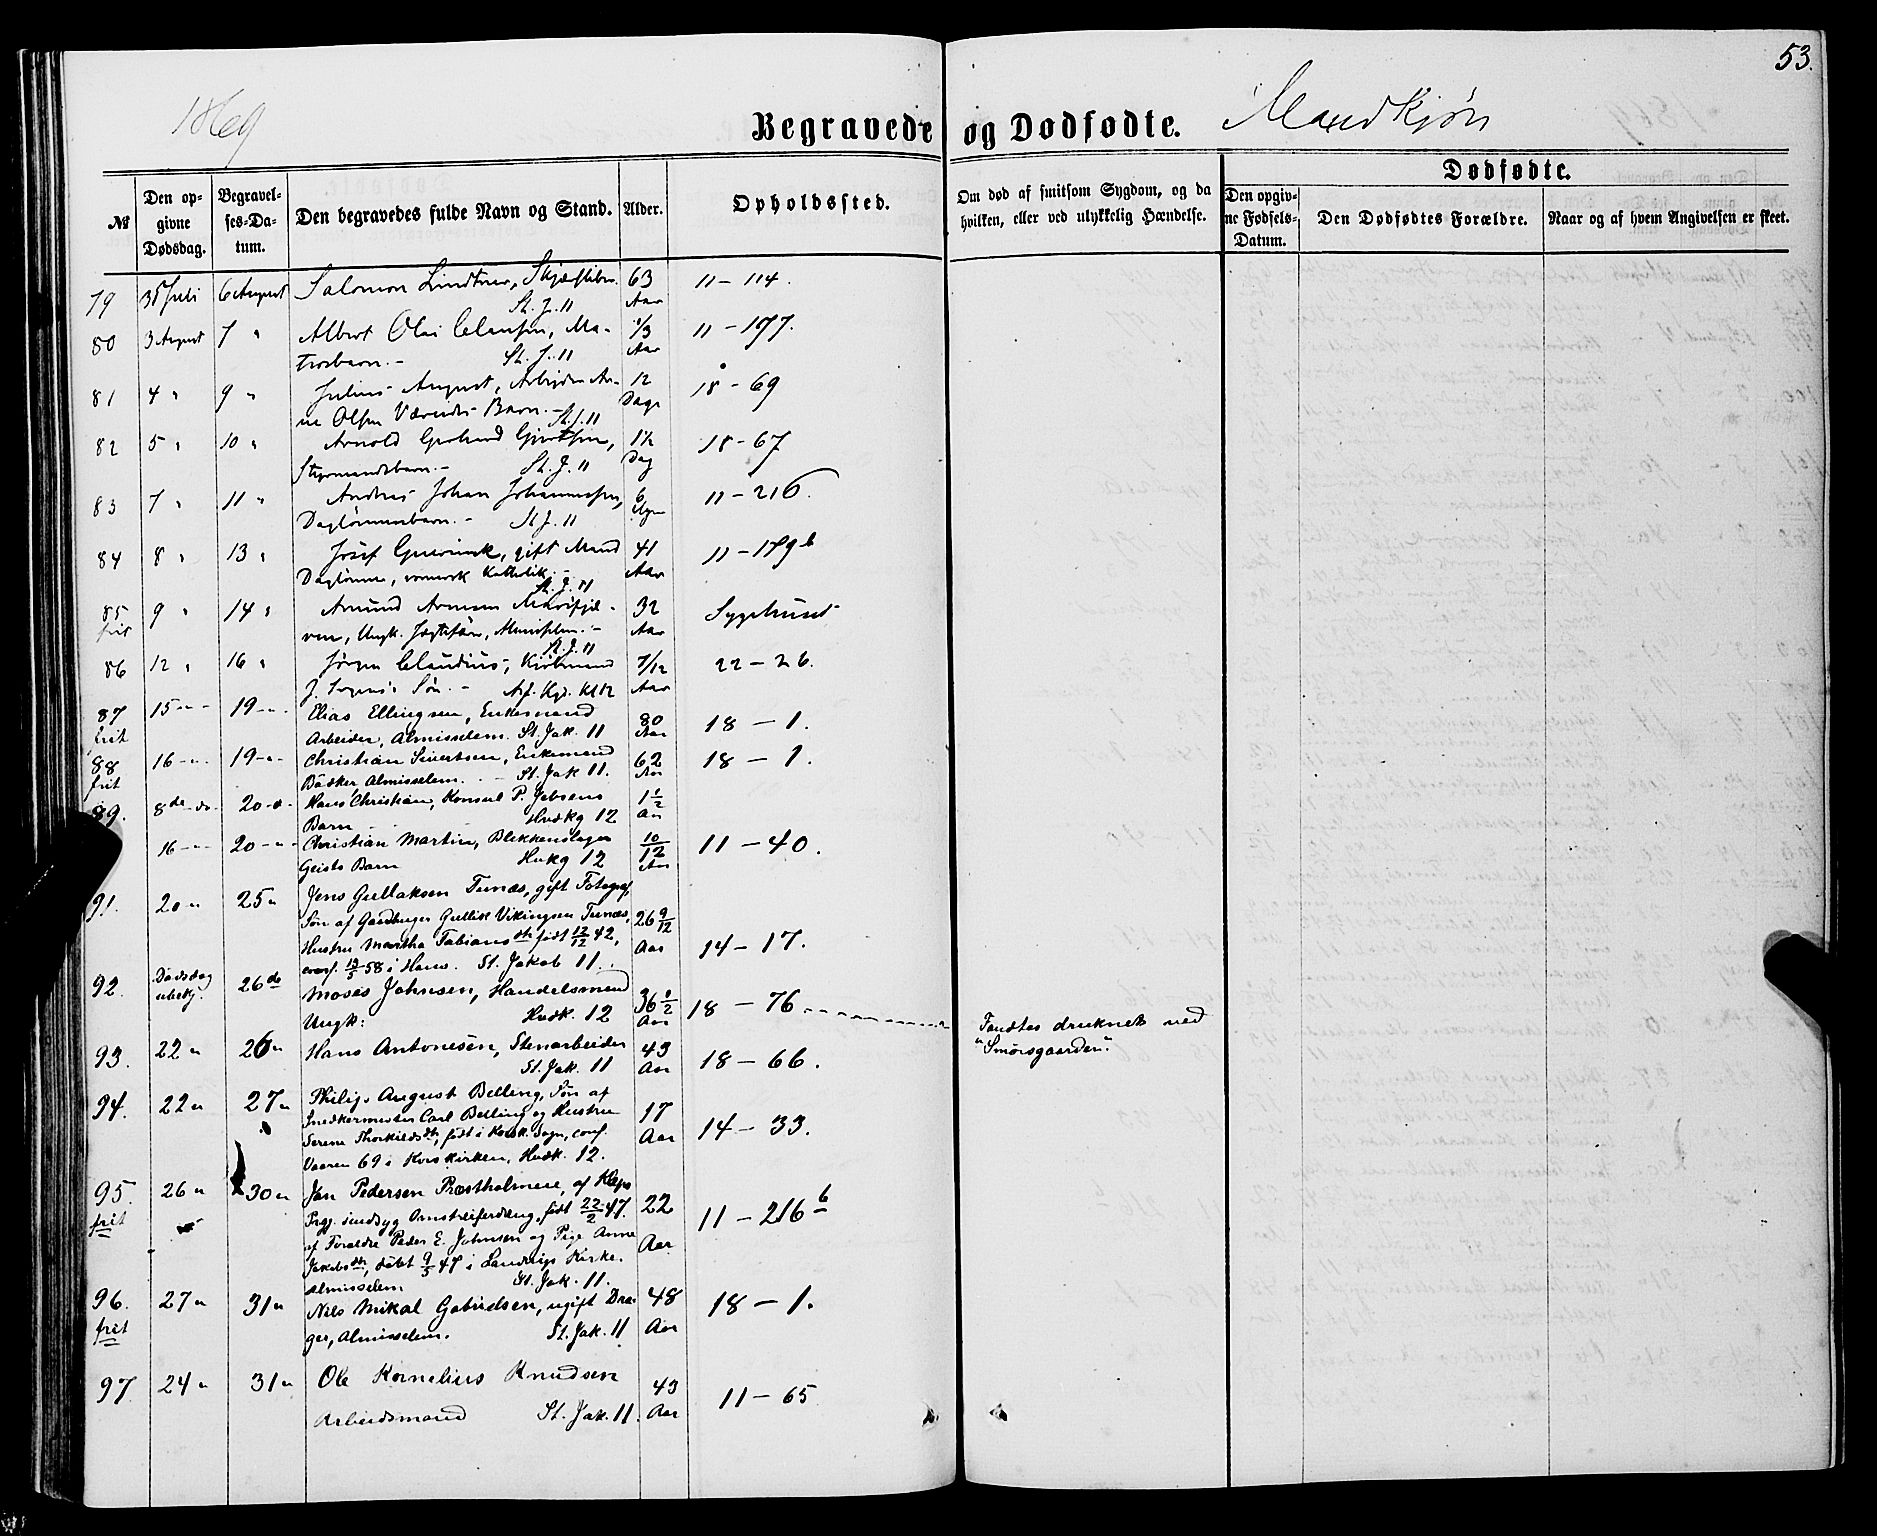 53.
1869
Begravede og Dødfødte. Mandkjøn
Dødfødte.
№
Den op-
givne
Dødsdag.
Begravel-
ses-Da-
tum.
Den begravedes fulde Navn og Stand.
Alder.
Opholdssted.
Om død af smitsom Sygdom, og da
hvilken, eller ved ulykkelig Hændelse.
Den opgiv-
ne Fødsels-
Datum.
Den Dødfødtes Forældre.
Naar og af hvem Angivelsen er skeet.
79 31 Juli 6 August Salomon Lindtner, 63 11 - 114.
St. J. 11 Aar
80 3 August 7 " Albert Olai Clausen, Ma- 1/3 11 - 177.
trosbarn. - St. J. 11 Aar
81 4 " 9 " Julius August, Arbeider Ar- 12 18 - 69
ne Olsen Barn. - St. J. 11 Dage
82 5 " 10 " Arnold Gerhard Gjertsen, 1½ 18 - 67
Styrmandsbarn. - St. J. 11 Dag
83 7 " 11 " Andreas Johan Johannessen, 6 11 - 216.
Daglønnersbarn. - St. J. 11
84 8 " 13 " Josef gift Mand 41 11 - 179 b
Daglønner, romersk Katholik. - St. J. 11 Aar
85 9 " 14 " Amund Arnesen 32 Sygehuset
frit Ungk. St. J. 11 Aar
86 12 " 16 " Jørgen Claudius, Kjøbmand 7/12 22 - 26.
J. Søn. - Aar
87 15 - " - 19 - " - Elias Ellingsen, Enkemand 80 18 - 1.
frit Arbeider, Almisselem. St. Jak. 11 Aar
88 16 - " - 19 - " - Christian Sivertsen, Enkemand 62 18 - 1.
frit Bødker Almisselem. - St. Jak 11. Aar
89. 8de - do - 20 - do Hans Christian, Konsul P. Jebsens 1½
Barn Hvdkg 12 Aar
16 - " - 20 - " - Christian Martin, Blikkenslager 10/12 11 - 40.
Geists Barn Hvkg 12 Aar
91. 20 " 25 " Jens Gullaksen Tunæs, gift Fotograf,
Søn af Gaardbruger Gullik Vikingsen Tunæs, 26 9/12
Hustru Martha Fabians dtr, født 12/12 42, Aar 14 - 17.
conf. 58 i Hams. St. Jakob 11.
92. Dødsdag 26de Moses Johnsen, Handelsmand 36½ 18 - 76
ubekj. Ungk: Hvdk. 12 Aar
Fandtes druknet ved
"Smørsgaarden".
93. 22 " 26 " Hans Antonesen, Stenarbeider 43 18 - 66.
St. Jak. 11 Aar
94. 22 " 27 " Philip August Belling, Søn af
Snedkermester Carl Belling og Hustru 17
Serene Thorkildsdtr, født i Korsk. Sogn, conf. Aar 14 - 33.
Vaaren 69 i Korskirken, Hvdk. 12.
95. 26 " 30 " Jan Pedersen Præstholmene, af Klepp
frit Prgj. sindsyg Omstreiferdreng, født 22/2 47. 22 11 - 216 b
af Foraldre Peder E. Johnsen og Pige Anne Aar
Jakobsdtr, døbt 9/5 47 i Kirke.
Almisselem St. Jak. 11.
96. 27 " 31 " Nils Mikal Gabrielsen, ugift Dra- 48 18 - 1.
frit ger, Almisselem. St. Jak. 11 Aar
97. 24 " 31 " Ole Kornelius Knudsen 43 11 - 65
Arbeidsmand St. Jak. 11. Aar